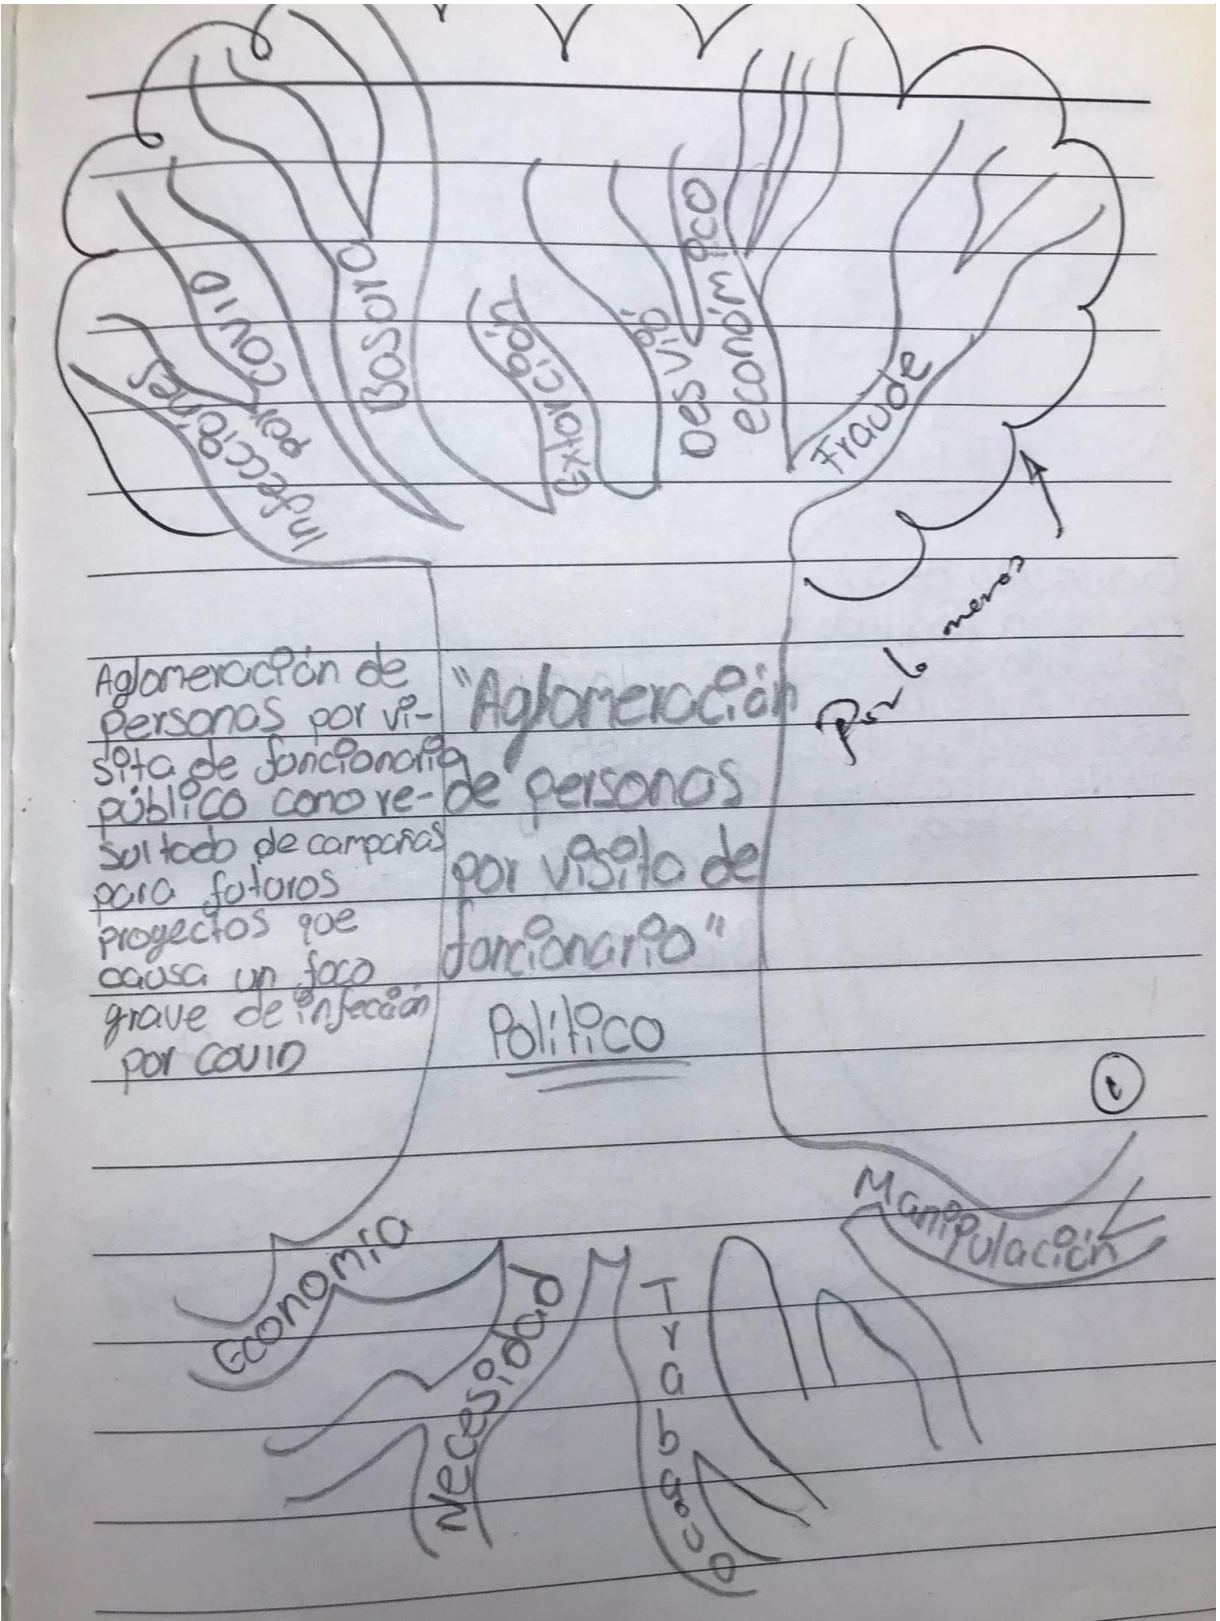 Infecciónes
por
COVID
Basura
Extorción
Desvió
económico
Fraude
Por lo menos
Aglomeración de
personas por vi-
sita de funcionario
público como re-
sultado de campañas
para futuros
proyectos que
causa un foco
grave de infección
por COVID
"Aglomeración
de personas
por visita de
funcionario"
Político
Manipulación
Economía
Necesidad
Trabajo